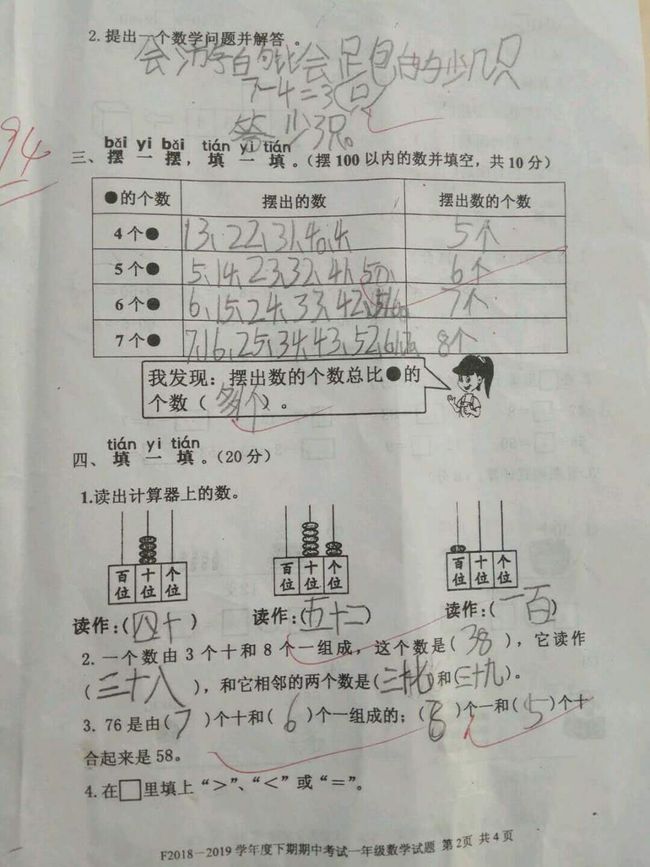 2. 提出一个数学问题并解答。
7-4=3(只)
答少3只。
94
bǎi yi bǎi tián yi tián
三、摆一摆，填一填。(摆100以内的数并填空，共10分)
●的个数 摆出的数 摆出数的个数
4个● 13、22、31、40、4、 5个
5个● 5、14、23、32、41、50、 6个
6个● 6、15、24、33、42、51、60 7个
7个● 7、16、25、34、43、52、61、70 8个
我发现：摆出数的个数总比●的
个数（多1个）。
tián yi tián
四、填一填。(20分)
1.读出计算器上的数。
百位 十位 个位 百位 十位 个位 百位 十位 个位
读作：(四十) 读作：(五十二) 读作：(一百)
2. 一个数由3个十和8个一组成，这个数是(38)，它读作
(三十八)，和它相邻的两个数是(三十七)和(三十九)。
3. 76是由(7)个十和(6)个一组成的；(8)个一和(5)个十
合起来是58。
4. 在□里填上“>”、“<”或“=”。
F2018—2019学年度下期期中考试一年级数学试题 第2页 共4页